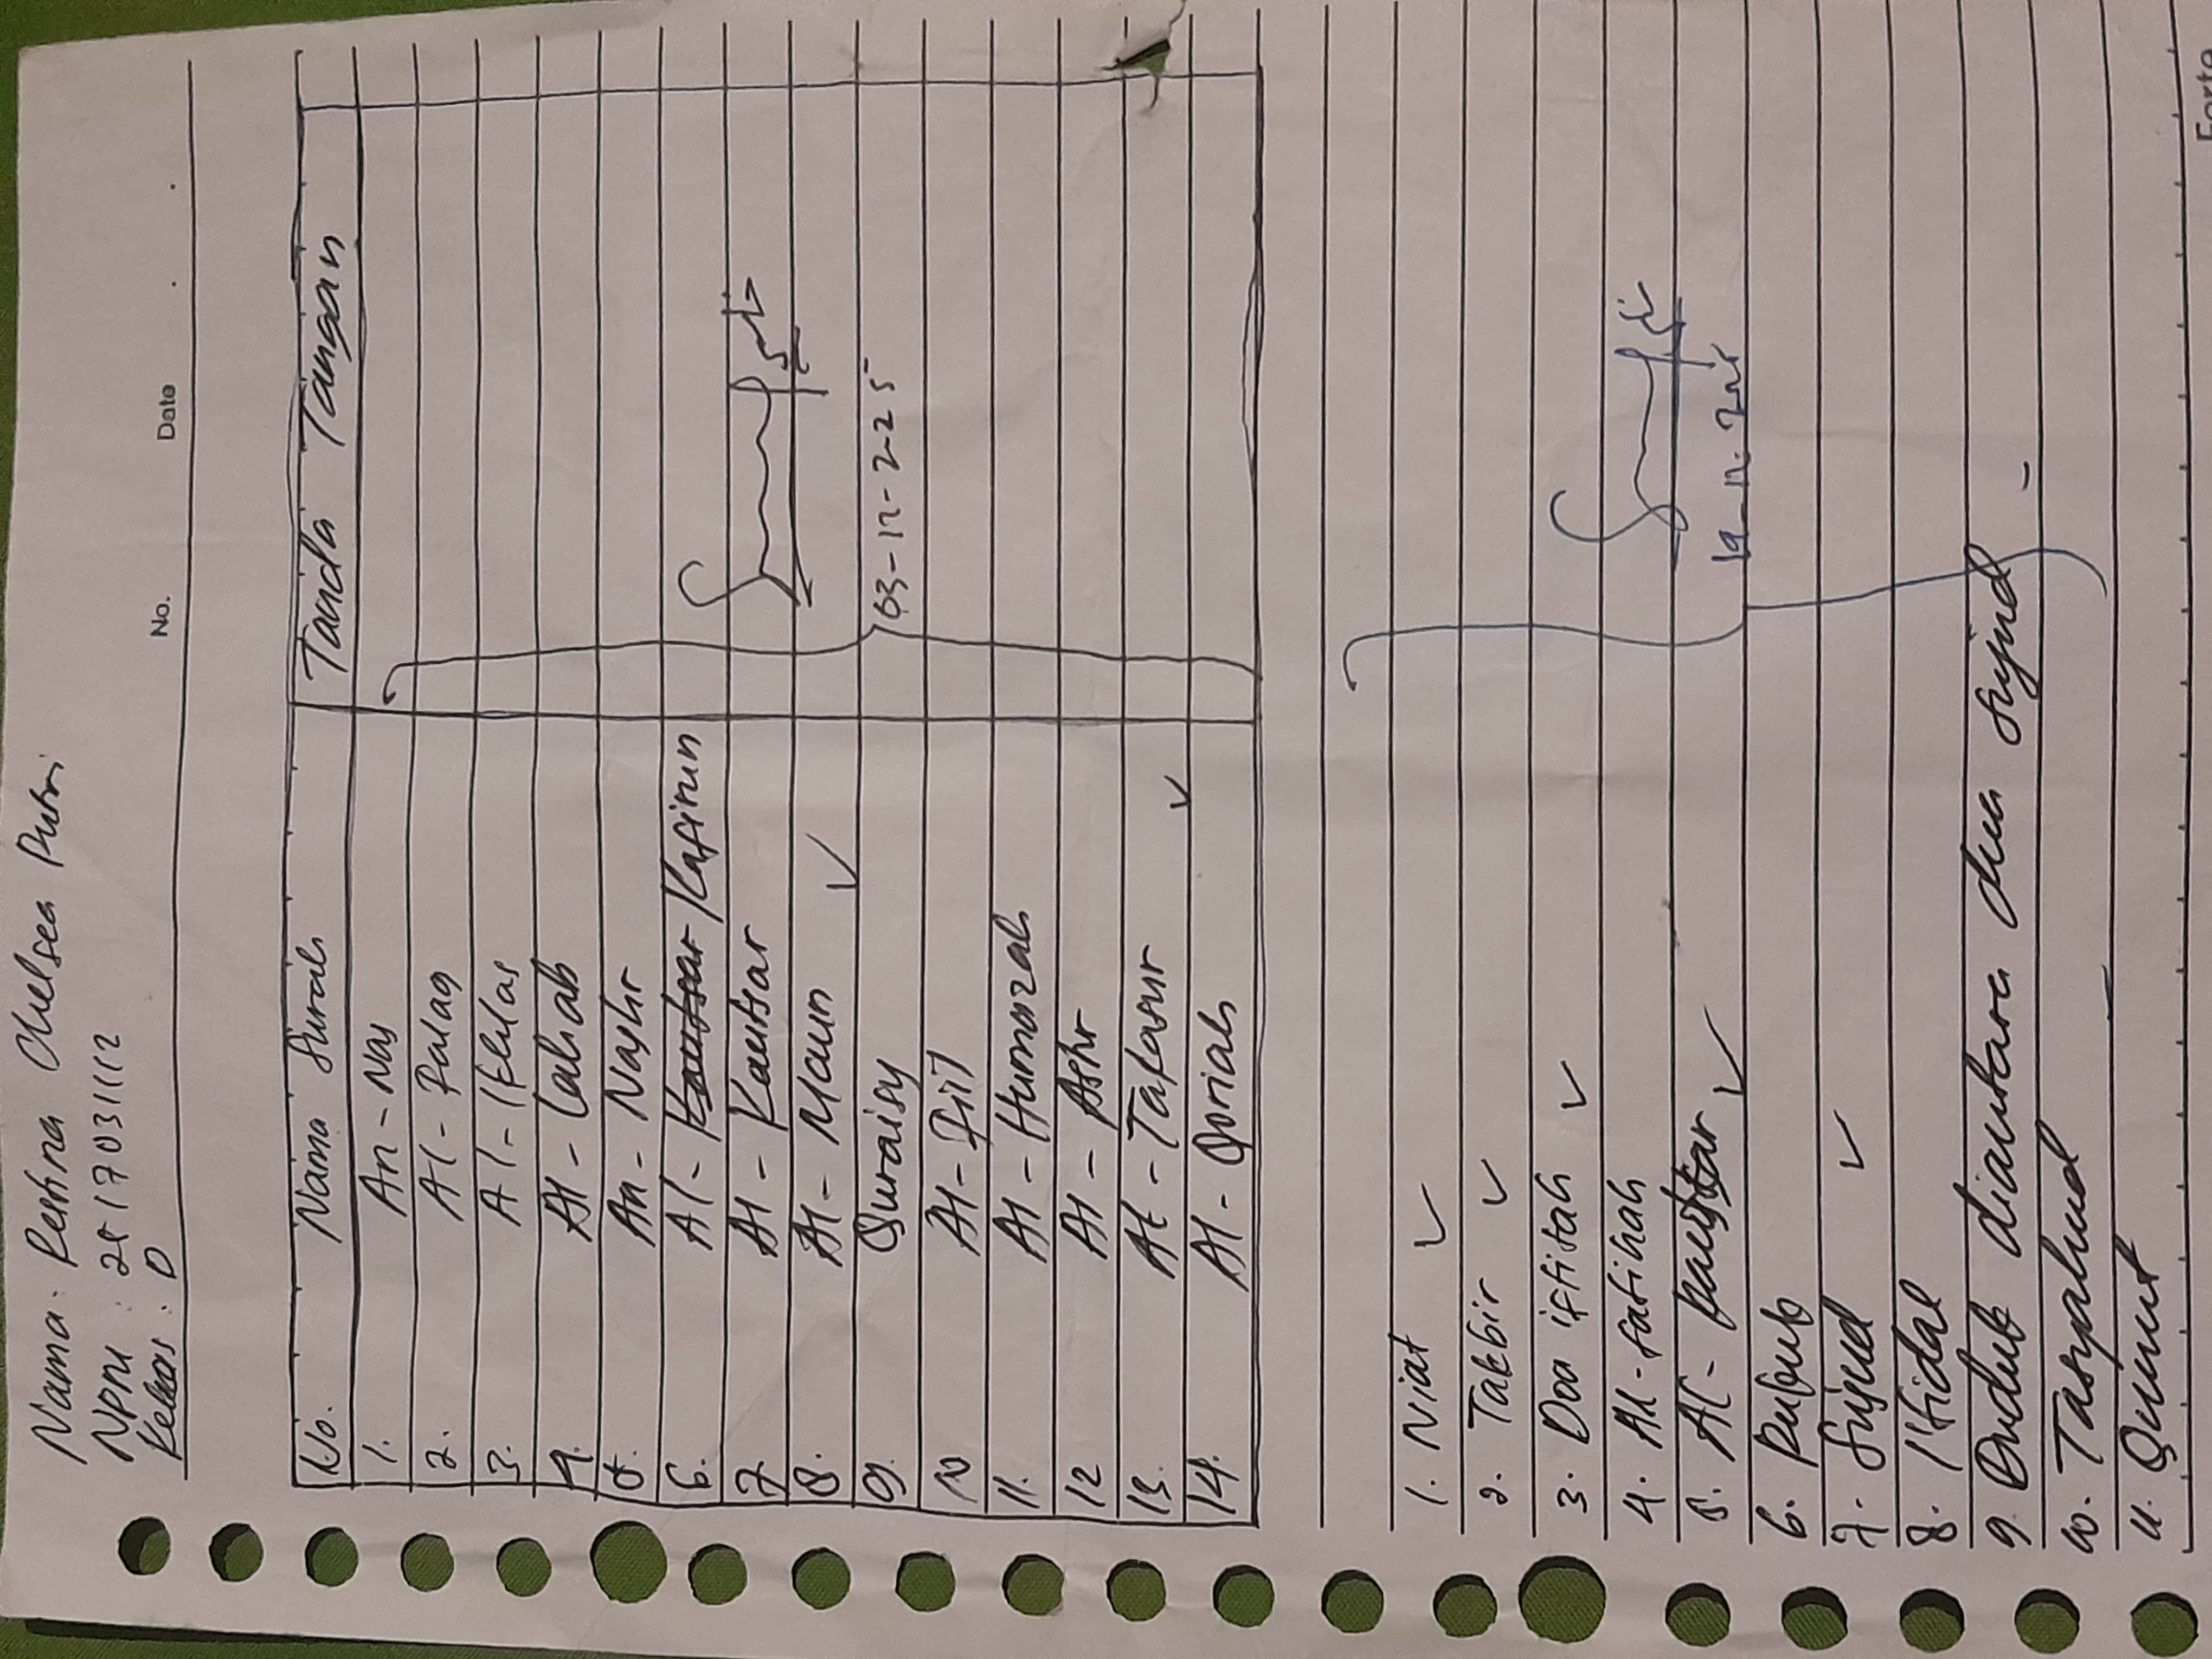 Nama : Reskna Chelsea Putri
NPM : 2117031112
Kelas : D
No. Date
No. Nama Surah Tanda Tangan
1. An - Nas
2. Al - Falaq
3. Al - Ikhlas
4. Al - Lahab
5. An - Nashr
6. Al - Kautsar / Kafirun
7. Al - Kautsar
8. Al - Maun ✓
9. Quraisy 03-12-225
10 Al - Fiil
11. Al - Humazah
12 Al - Ashr
13. At - Takasur ✓
14. Al - Qoriah
1. Niat ✓
2. Takbir ✓
3. Doa iftitah ✓
4. Al - fatihah
5. Al - kautsar ✓
6. Rukuk
7. Sujud ✓
8. I'tidal
9. Duduk diantara dua sujud -
10. Tasyahud
11. Qunut